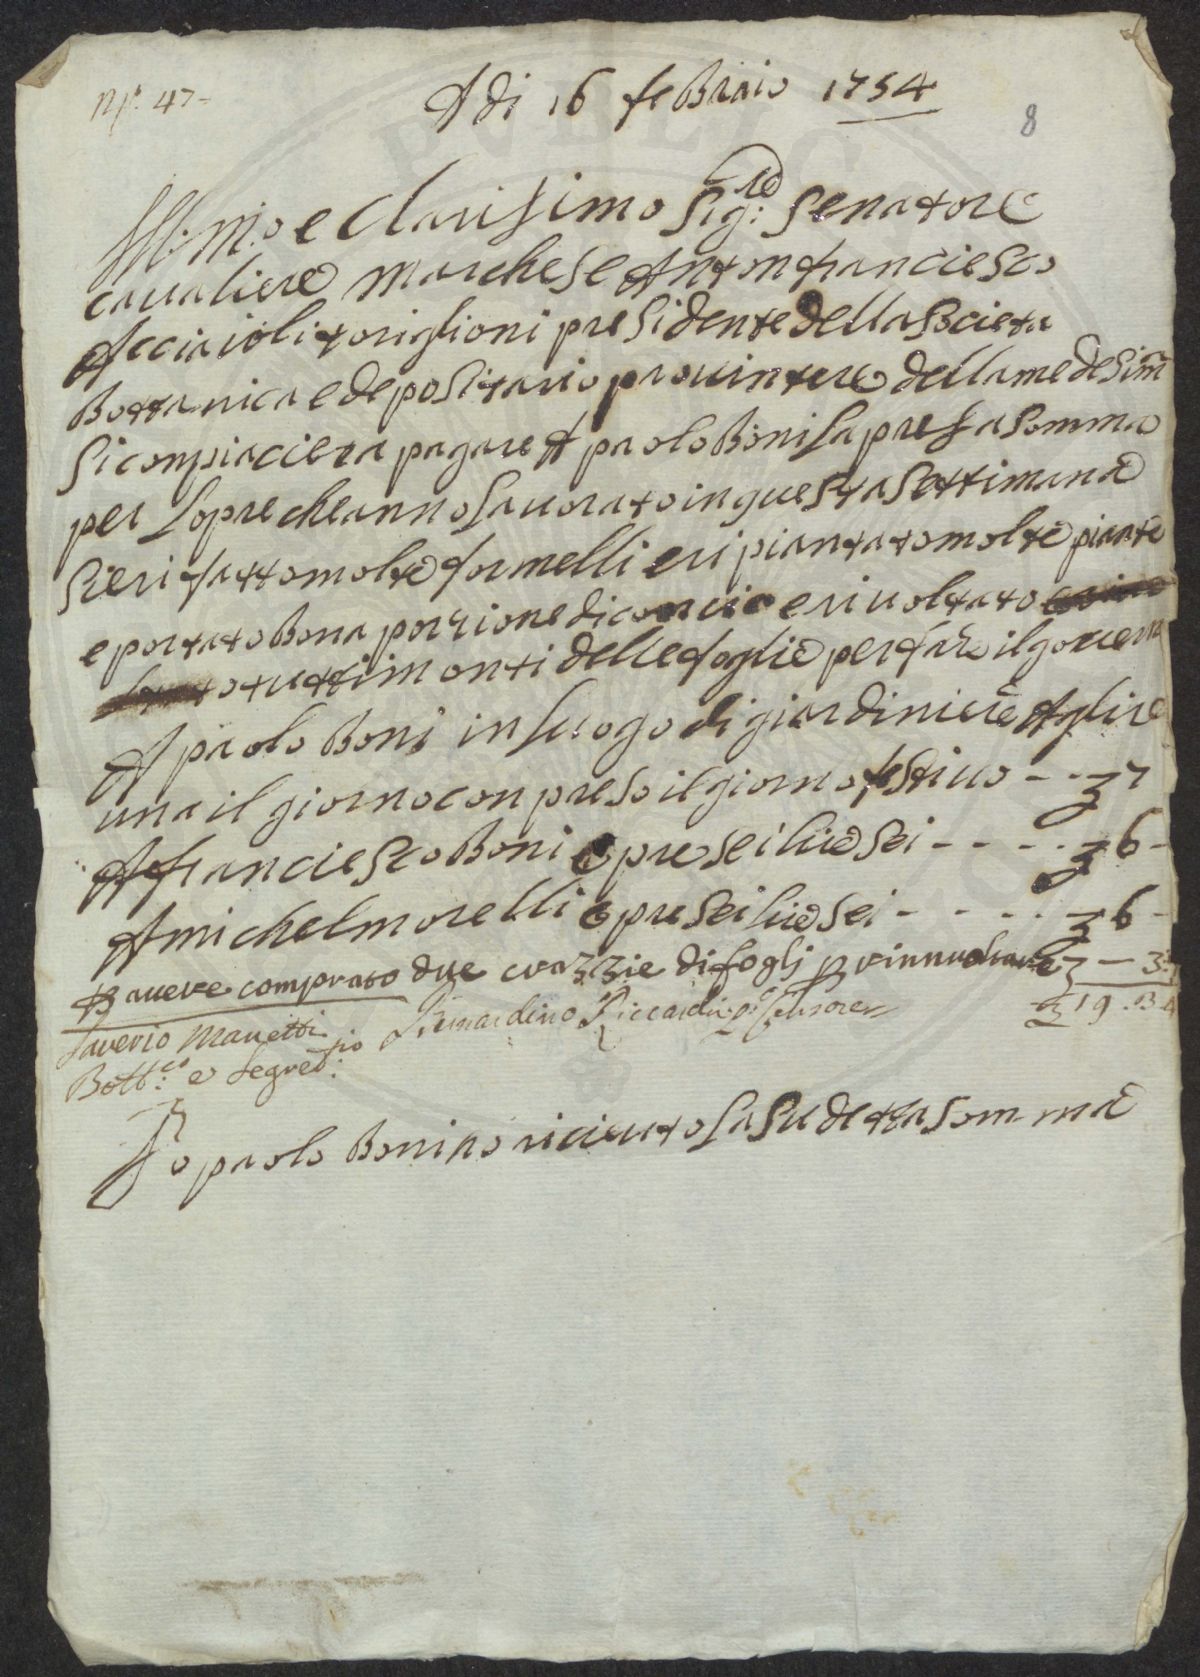 N.º 47-
A di 16 febraio 1754
8
Ill:mo e Clarisimo Sig:re Senatore
cavaliere Marchese Antonfranciesco
Acciaioli toriglioni presidente della Societa
Bottanica e depositario pro
della medesima
si conpiaciera pagare A paolo Boni la presa somma
per lopre che anno lavorato in questa settimana
si e ri fatto molte formelli e ri piantato molte piante
e portato Bona porzione di concio e rivoltato
tutti i monti delle foglie per fare il
A paolo Boni in luogo di giardiniere A lire
una il giorno conpreso il giorno festivo - - £ 7
A franciesco Boni opre sei lire sei - - - - £ 6 -
A michel morelli opre sei lire sei - - - - £ 6 -
P avere comprato due crazzie di fogli p £ — 3:
£ 19. 13. 4
Saverio Manetti
Bott:co e Segret:rio
Bernardino Riccardi Censore
Io paolo Boni ho riceuto la su detta somma